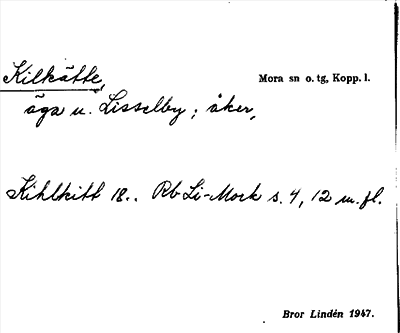 Kilkätte,
Mora sn o. tg, Kopp. l.
äga u. Lisselby; åker,
Kihlkitt 18.. Rb Li-Mork s. 4, 12 m. fl.
Bror Lindén 1947.